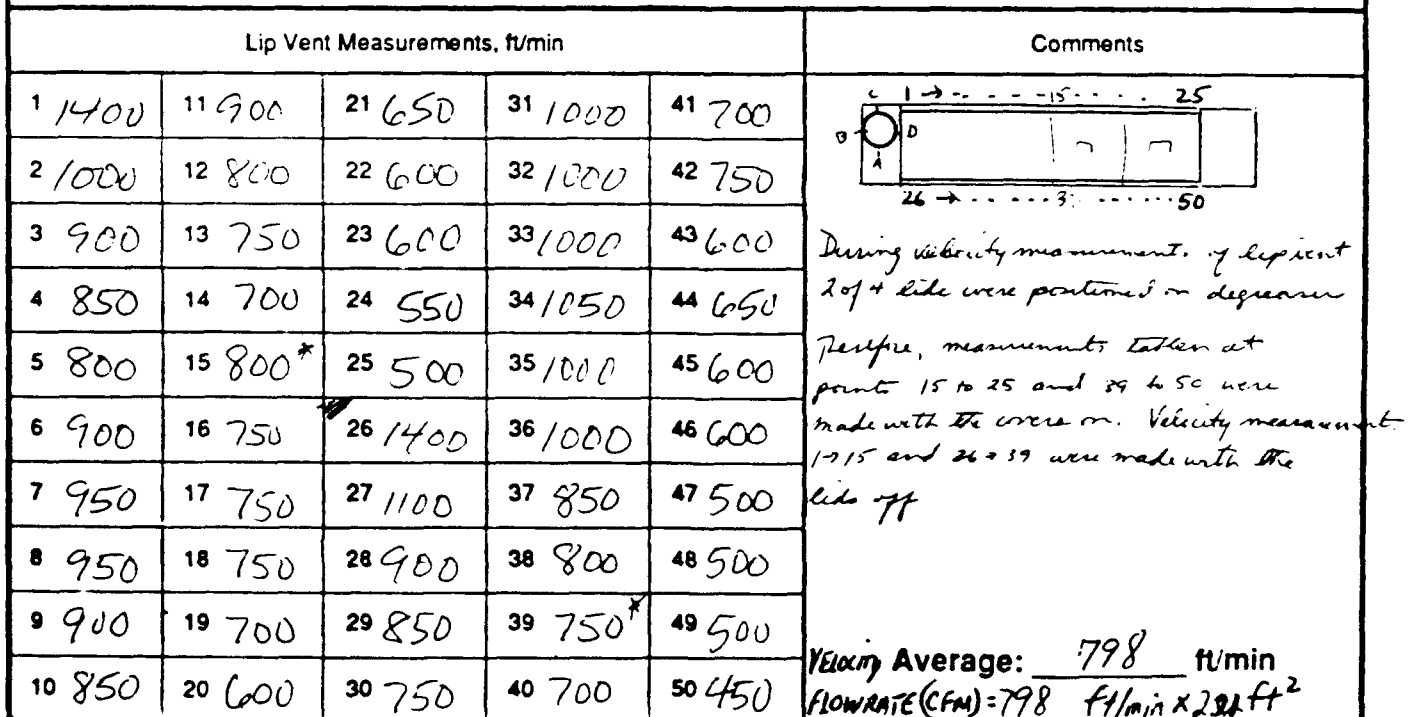 Lip Vent Measurements, ft/min Comments
1 1400 11 900 21 650 31 1000 41 700
2 1000 12 800 22 600 32 1000 42 750
3 900 13 750 23 600 33 1000 43 600
4 850 14 700 24 550 34 1050 44 650
5 800 15 800* 25 500 35 1000 45 600
6 900 16 750 26 1400 36 1000 46 600
7 950 17 750 27 1100 37 850 47 500
8 950 18 750 28 900 38 800 48 500
9 900 19 700 29 850 39 750* 49 500
10 850 20 600 30 750 40 700 50 450
C 1 → - - - -15- - - . 25
B D
A
26 → - - - - - 50
During velocity measurement. of lip vent
2 of 4 lids were positioned on degreaser
measurements taken at
points 15 to 25 and 39 to 50 were
made with the covers on. Velocity measurement.
1→15 and 26 39 were made with the
lids off
VELOCITY Average: 798 ft/min
FLOWRATE (CFM) = 798 ft/min x ft²